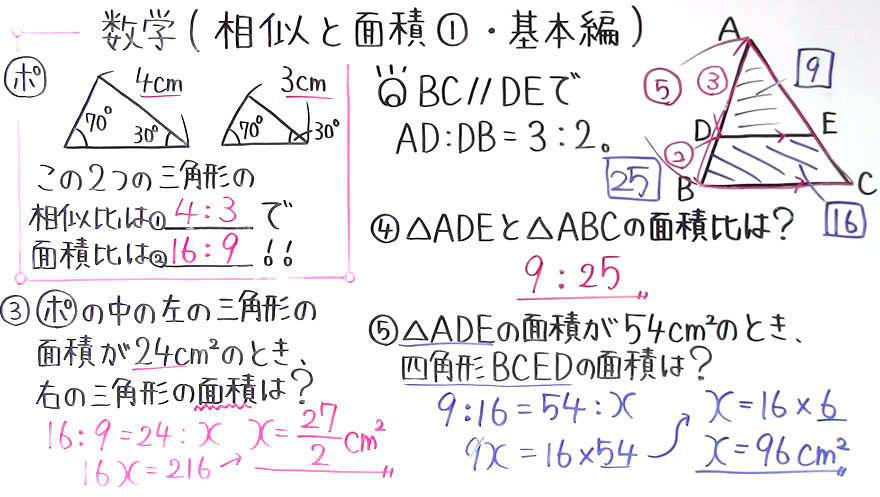 数学(相似と面積①・基本編)
ポ
4cm
3cm
70°
30°
70°
30°
この2つの三角形の
相似比は① 4:3 で
面積比は② 16:9 !!
③ポの中の左の三角形の
面積が24cm²のとき、
右の三角形の面積は?
16:9=24:x
16x=216
x=27/2 cm²
BC//DEで
AD:DB=3:2。
A
⑤
③
9
D
E
②
25
B
C
16
④△ADEと△ABCの面積比は?
9:25
⑤△ADEの面積が54cm²のとき、
四角形BCEDの面積は?
9:16=54:x
9x=16×54
x=16×6
x=96cm²